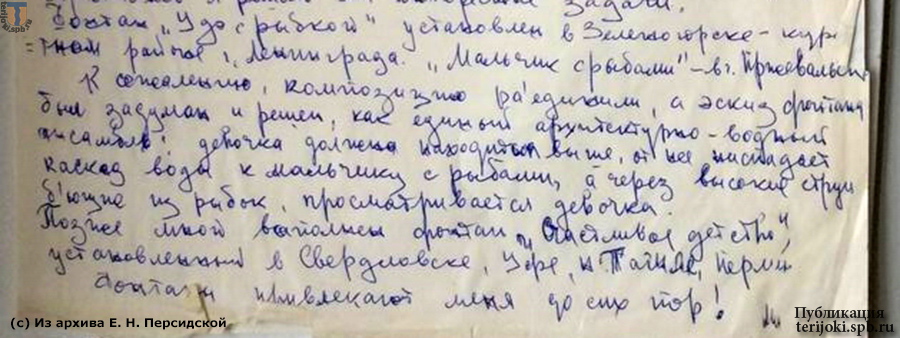 задачи.
Фонтан "Удо с рыбкой" установлен в Зеленогорске - кур
= тном районе г. Ленинграда. "Мальчик с рыбами" - в г. Пржевальск
К сожалению, композицию раз'единили, а эскиз фонтана
был задуман и решен, как единый архитектурно-водный
ансамбль: девочка должна находиться выше, от нее ниспадает
каскад воды к мальчику с рыбами, а через высокие струи
б'ющие из рыбок, просматривается девочка.
Позже мной выполнен фонтан "Счастливое детство",
установленный в Свердловске, Уфе, Н Тагиле, Перми
Фонтаны привлекают меня до сих пор!
(с) Из архива Е. Н. Персидской
Публикация
terijoki.spb.ru
terijoki.spb.ru